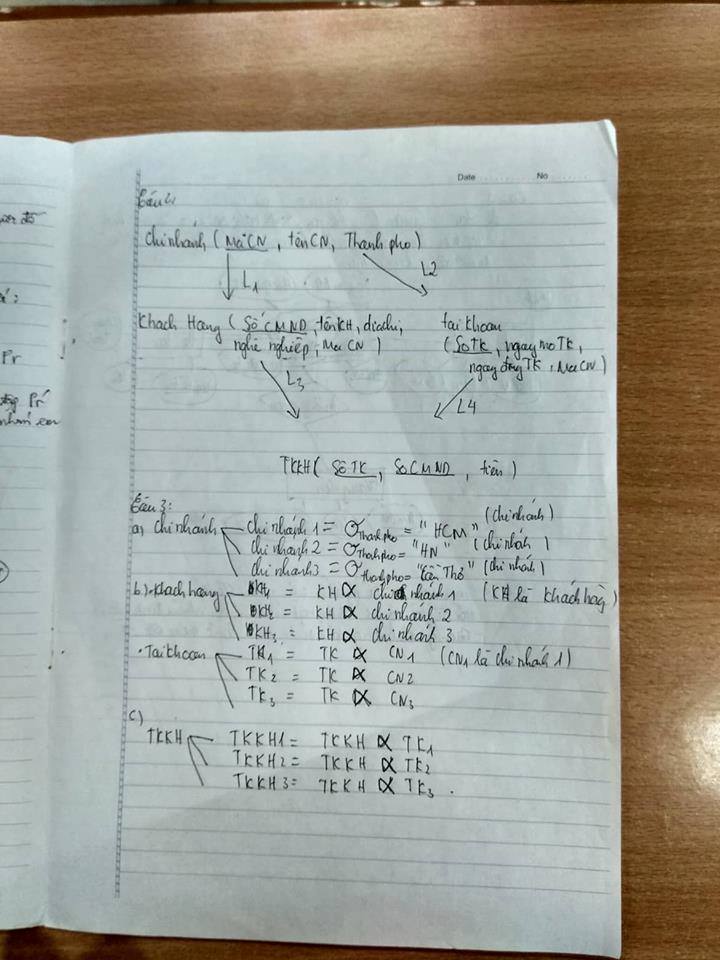 Date No
Câu 2:
Chi nhánh ( Mã CN , tên CN, Thanh pho)
L1 L2
Khach Hang ( Số CMND, tên KH, diachi,
nghề nghiệp, Ma CN )
tai khoan
( Số TK , ngay mo TK,
ngay đóng TK , Ma CN )
L3 L4
TKKH ( Số TK , So CMND , tiền )
Câu 3:
a) chi nhánh
chi nhánh 1 = σ Thanh pho = "HCM" (chi nhánh)
chi nhanh 2 = σ Thanh pho = "HN" (chi nhánh)
chi nhanh 3 = σ thanh pho = "Cần Thơ" (chi nhánh)
b.) Khach hang
KH1 = KH ∝ chi nhánh 1 (KH là khách hàng)
KH2 = KH ∝ chi nhánh 2
KH3 = KH ∝ chi nhánh 3
. Tai khoan
TK1 = TK ∝ CN1 (CN1 là chi nhánh 1)
TK2 = TK ∝ CN2
TK3 = TK ∝ CN3
c)
TKKH
TKKH1 = TKKH ∝ TK1
TKKH2 = TKKH ∝ TK2
TKKH3 = TKKH ∝ TK3 .